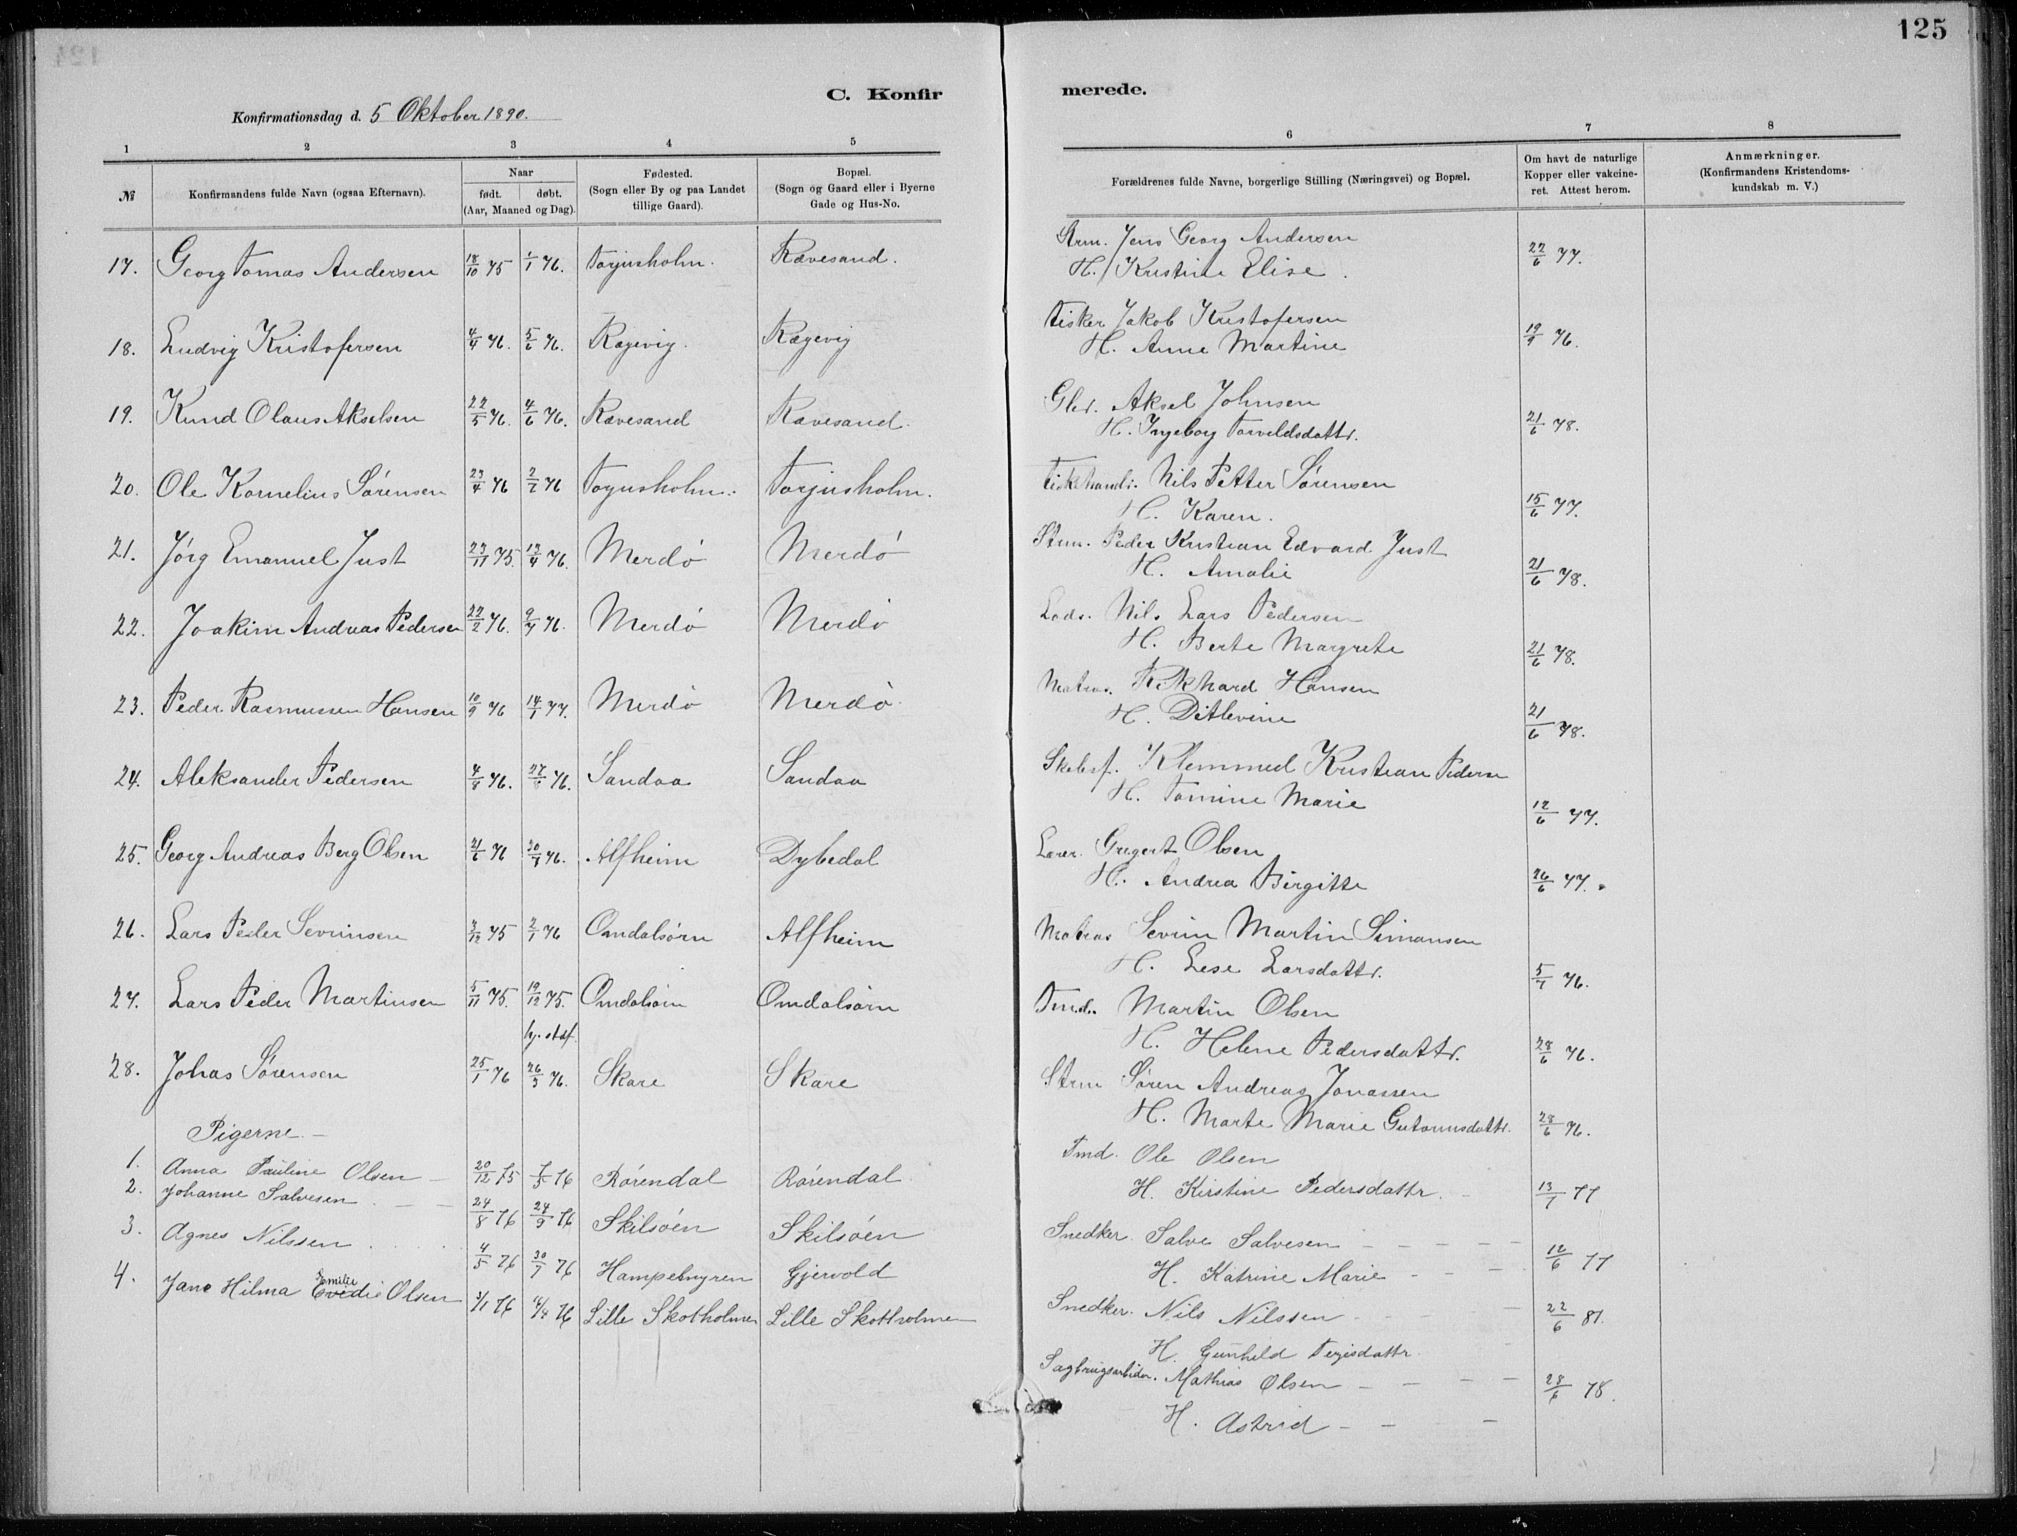 125
C. Konfirmerede.
Konfirmationsdag d. 5 Oktober 1890.
1 2 3 4 5 6 7 8
№ Konfirmandens fulde Navn (ogsaa Efternavn). Naar født. døbt. (Aar, Maaned og Dag). Fødested. (Sogn eller By og paa Landet tillige Gaard). Bopæl. (Sogn og Gaard eller i Byerne Gade og Hus-No. Forældrenes fulde Navne, borgerlige Stilling (Næringsvei) og Bopæl. Om havt de naturlige Kopper eller vakcineret. Attest herom. Anmærkninger. (Konfirmandens Kristendomskundskab m. V.)
17. Georg Tomas Andersen 18/10 75 1/1 76. Torjusholm. Rævesand. Strm. Jens Georg Andersen 22/6 77.
H. Kristine Elise.
18. Ludvig Kristofersen 4/4 76. 5/6 76. Rægevig. Rægevig Fisker Jakob Kristofersen 76.
H. Anne Martine
19. Knud Olaus Akselsen 22/5 76. 4/6 76. Rævesand Rævesand. Aksel Johnsen 21/6 78.
H. Ingeborg Torveldsdattr.
20. Ole Kornelius Sørensen 23/4 76 2/7 76 Torjusholm. Torjusholm. Fiskehandl. Nils Petter Sørensen 15/6 77.
H. Karen.
21. Jørg Emanuel Just 23/11 75. 76. Merdø Merdø Strm. Peder Kristian Edvard Just 21/6 78.
H. Amalie
22. Joakim Andreas Pedersen 22/2 76. 76. Merdø Merdø Lods. Nils Lars Pedersen 21/6 78.
H. Berte Margrete
23. Peder Rasmussen Hansen 10/9 76 14/1 77. Merdø Merdø Matros. Rikhard Hansen 21/6 78.
H. Ditlevine
24. Aleksander Pedersen 76. 76. Sandaa Sandaa Klemmed Kristian Pedersen 12/6 77.
H. Tomine Marie
25. Georg Andreas Berg Olsen 76 76. Alfheim Dybedal Lærer. Gregert Olsen 26/6 77.
H. Andrea Birgitte
26. Lars Peder Sevrinsen 75 2/1 76 Omdalsørn Alfheim Matros Sevrin Martin Simonsen 5/7 76.
H. Lese Larsdattr.
27. Lars Peder Martinsen 5/11 75. 19/12 75. Omdalsørn Omdalsørn Tmd. Martin Olsen 28/6 76.
hj. stdf. H. Helene Pedersdattr.
28. Johas Sørensen 25/1 76 26/3 76. Skare Skare Strm Søren Andreas Jonassen 28/6 76.
H. Marte Marie
Pigerne. —
1. Anna Pauline Olsen — 20/12 75 76 Rørendal Rørendal Tmd. Ole Olsen 13/7 77
H. Kirstine Pedersdattr.
2. Johanne Salvesen 24/8 76 24/9 76 Skilsøen Skilsøen Snedker. Salve Salvesen 12/6 77
H. Katrine Marie
3. Agnes Nilssen 4/5 76 30/7 76 Hampemyren Gjervold Snedker. Nils Nilssen 22/6 81.
H. Gunhild Tergisdattr
4. Jane Hilma Emilie Olsen 76 76 Lille Skotholmen Lille Skottholmen Sagbrugsarbider. Mathias Olsen 28/6 78.
H. Astrid